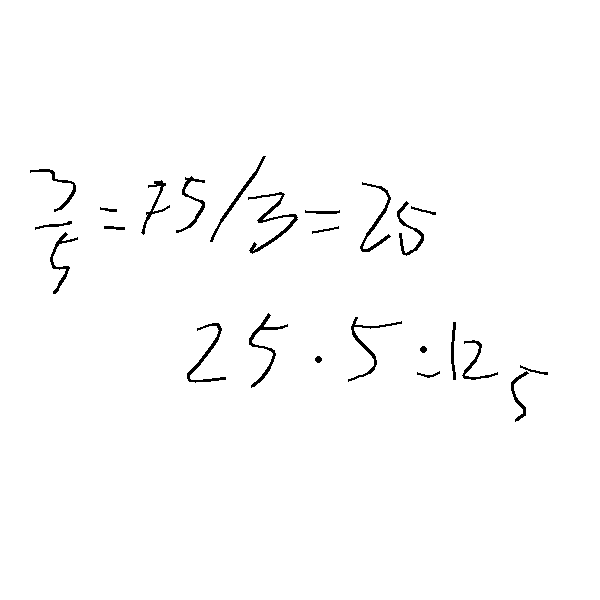 3/5 = 75/3 = 25
25 · 5 = 125